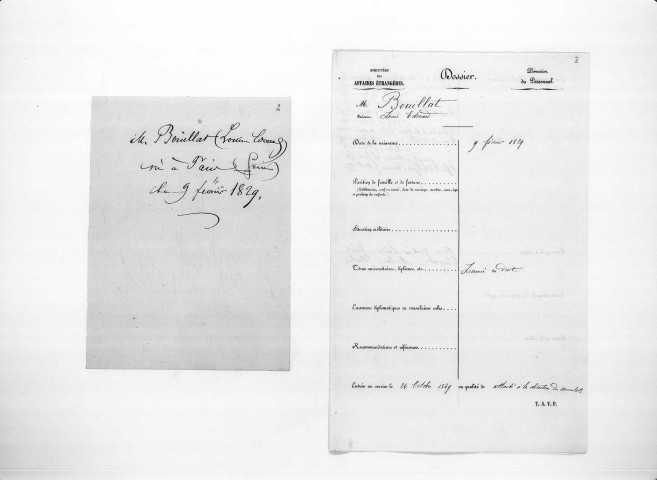 2
M. Bouillat (Louis Edouard)
né à Paris (Seine)
le 9 février 1829.
3
MINISTÈRE
DES
AFFAIRES ÉTRANGÈRES.
Dossier.
Direction
du Personnel.
M. Bouillat
Prénoms Louis Edouard
Date de la naissance 9 février 1829
Position de famille et de fortune
(Célibataire, veuf ou marié, date du mariage, nombre, sexe, âge
et position des enfants.)
Situation militaire
Titres universitaires, diplômes, etc. Licencié en droit
Examens diplomatiques ou consulaires subis
Recommandations et références
Entrée au service le 24 Octobre 1849 en qualité de attaché à la direction des consulats
T. S. V. P.